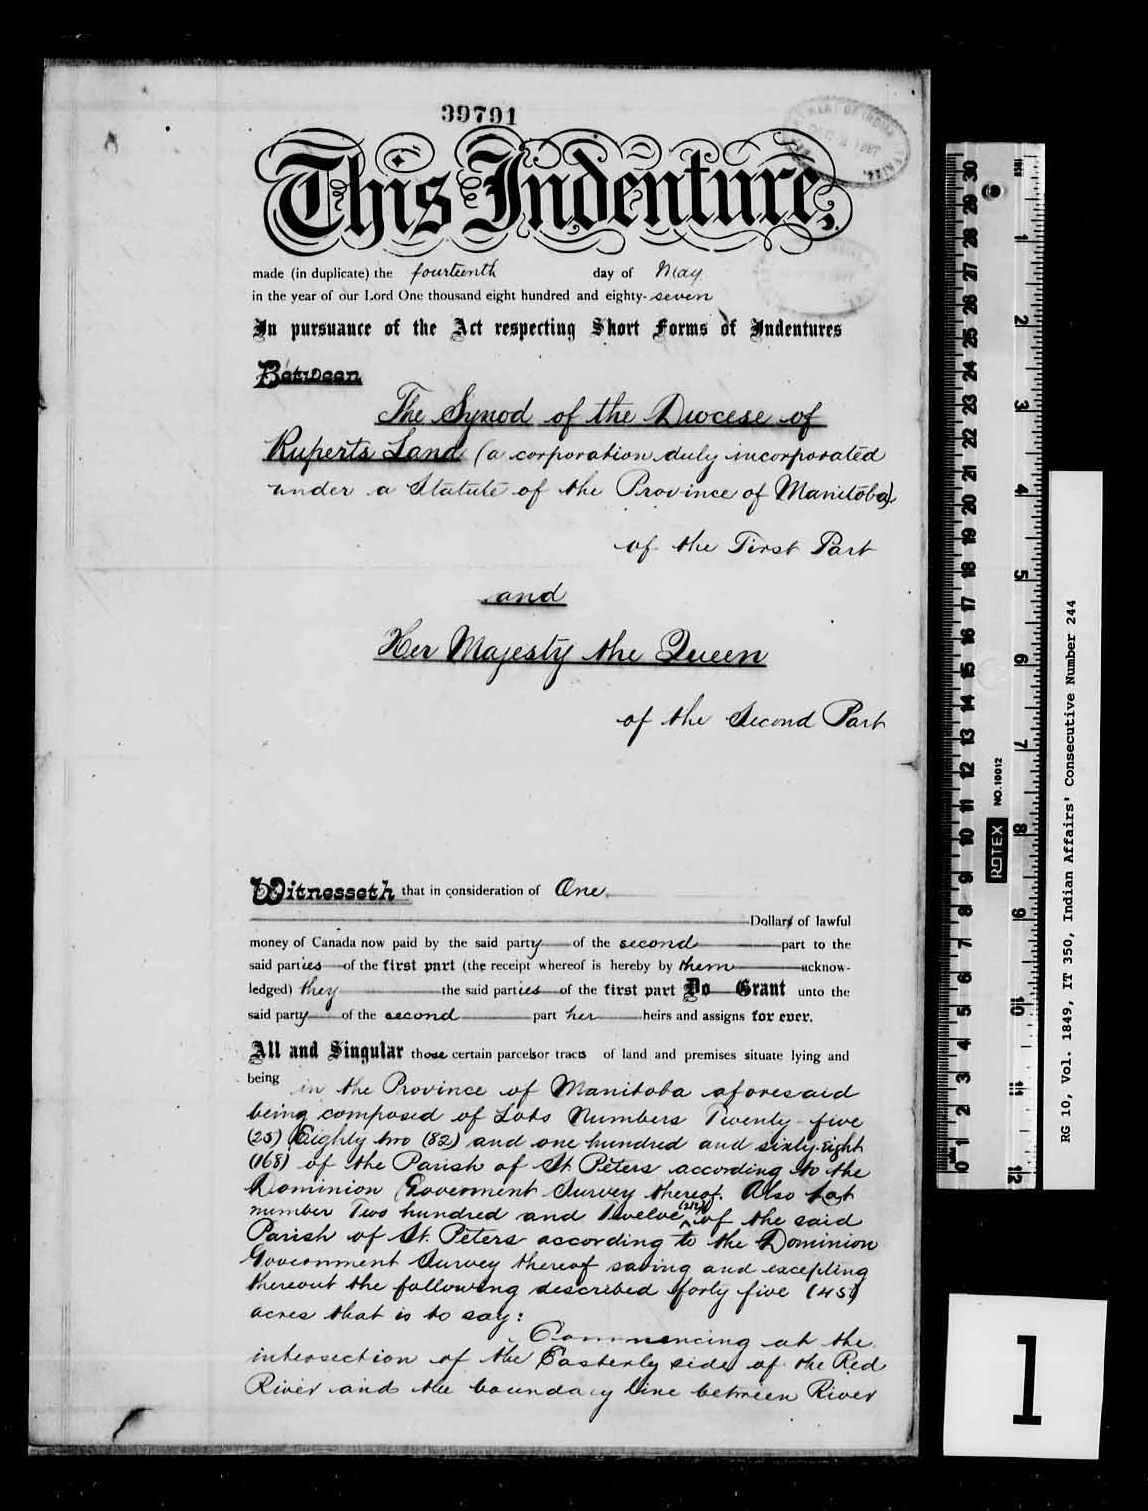 39791
This Indenture,
made (in duplicate) the fourteenth day of May
in the year of our Lord One thousand eight hundred and eighty-seven
In pursuance of the Act respecting Short Forms of Indentures
Between
The Synod of the Diocese of
Ruperts Land (a corporation duly incorporated
under a Statute of the Province of Manitoba)
of the First Part
and
Her Majesty the Queen
of the Second Part
Witnesseth that in consideration of One
Dollar of lawful
money of Canada now paid by the said party of the second part to the
said parties of the first part (the receipt whereof is hereby by them acknow-
ledged) they the said parties of the first part Do Grant unto the
said party of the second part her heirs and assigns for ever.
All and Singular those certain parcels or tracts of land and premises situate lying and
being in the Province of Manitoba aforesaid
being composed of Lots Numbers Twenty-five
(25) Eighty two (82) and one hundred and sixty-eight
(168) of the Parish of St Peters according to the
Dominion Government Survey thereof. Also Lot
number Two hundred and Twelve (212) of the said
Parish of St. Peters according to the Dominion
Government Survey thereof saving and excepting
thereout the following described forty five (45)
acres that is to say:
Commencing at the
intersection of the Easterly side of the Red
River and the boundary line between River
30 29 28 27 26 25 24 23 22 21 20 19 18 17 16 15 14 13 12 11 10 9 8 7 6 5 4 3 2 1 0
1 2 3 4 5 6 7 8 9 10 11 12
ROTEX
NO.10012
RG 10, Vol. 1849, IT 350, Indian Affairs' Consecutive Number 244
1